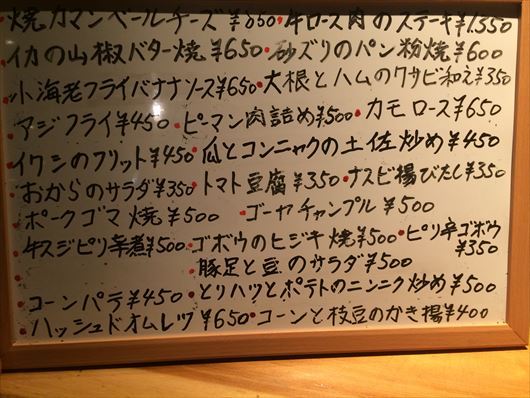 焼カマンベールチーズ¥650 牛ロース肉のステーキ¥1,350
イカの山椒バター焼¥650 砂ズリのパン粉焼¥600
小海老フライバナナソース¥650 大根とハムのワサビ和え¥350
アジフライ¥450 ピーマン肉詰め¥500 カモロース¥650
イワシのフリット¥450 瓜とコンニャクの土佐炒め¥450
おからのサラダ¥350 トマト豆腐¥350 ナスビ揚びたし¥350
ポークゴマ焼¥500 ゴーヤチャンプル¥500
牛スジピリ辛煮¥500 ゴボウのヒジキ焼¥500 ピリ辛ゴボウ¥350
豚足と豆のサラダ¥500
コーンパラ¥450 とりハツとポテトのニンニク炒め¥500
ハッシュドオムレツ¥650 コーンと枝豆のかき揚¥400